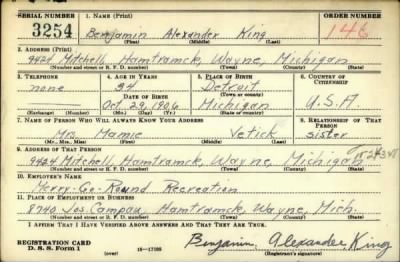 SERIAL NUMBER 1. NAME (Print) ORDER NUMBER
3254 Benjamin Alexander King 146
(First) (Middle) (Last)
2. ADDRESS (Print)
9424 Mitchell, Hamtramck, Wayne, Michigan
(Number and street or R. F. D. number) (Town) (County) (State)
3. TELEPHONE 4. AGE IN YEARS 5. PLACE OF BIRTH 6. COUNTRY OF CITIZENSHIP
none 34 Detroit
DATE OF BIRTH (Town or county)
Oct 29, 1906 Michigan U.S.A.
(Exchange) (Number) (Mo.) (Day) (Yr.) (State or country)
7. NAME OF PERSON WHO WILL ALWAYS KNOW YOUR ADDRESS 8. RELATIONSHIP OF THAT PERSON
Mrs. Mamie Vetick sister
(Mr., Mrs., Miss) (First) (Middle) (Last)
9. ADDRESS OF THAT PERSON
9424 Mitchell, Hamtramck, Wayne, Michigan
(Number and street or R. F. D. number) (Town) (County) (State)
10. EMPLOYER'S NAME
Merry-Go-Round Recreation
11. PLACE OF EMPLOYMENT OR BUSINESS
8740 Jos. Campau, Hamtramck, Wayne, Mich.
(Number and street or R. F. D. number) (Town) (County) (State)
I AFFIRM THAT I HAVE VERIFIED ABOVE ANSWERS AND THAT THEY ARE TRUE.
REGISTRATION CARD
D. S. S. Form 1 16-17105 Benjamin Alexander King
(Registrant's signature)